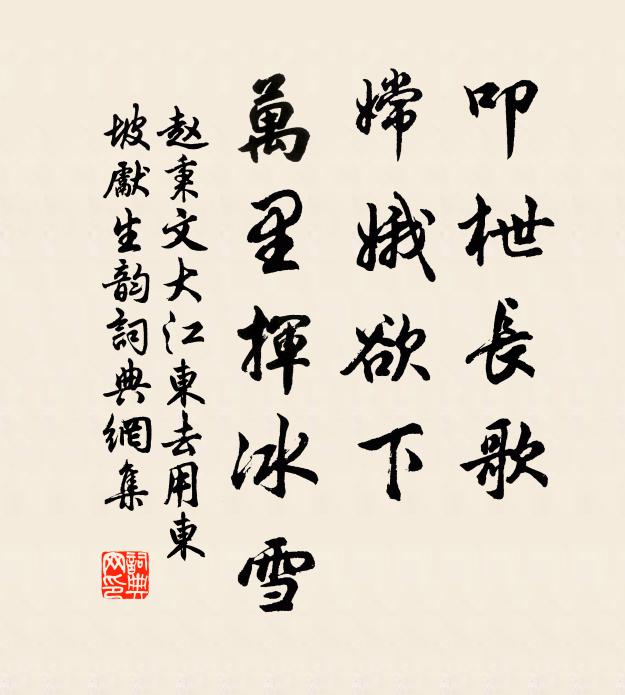 叩枻長歌
嫦娥欲下
萬里揮冰雪
趙秉文大江東去用東
坡獻生韵詞典網集
詞典網印